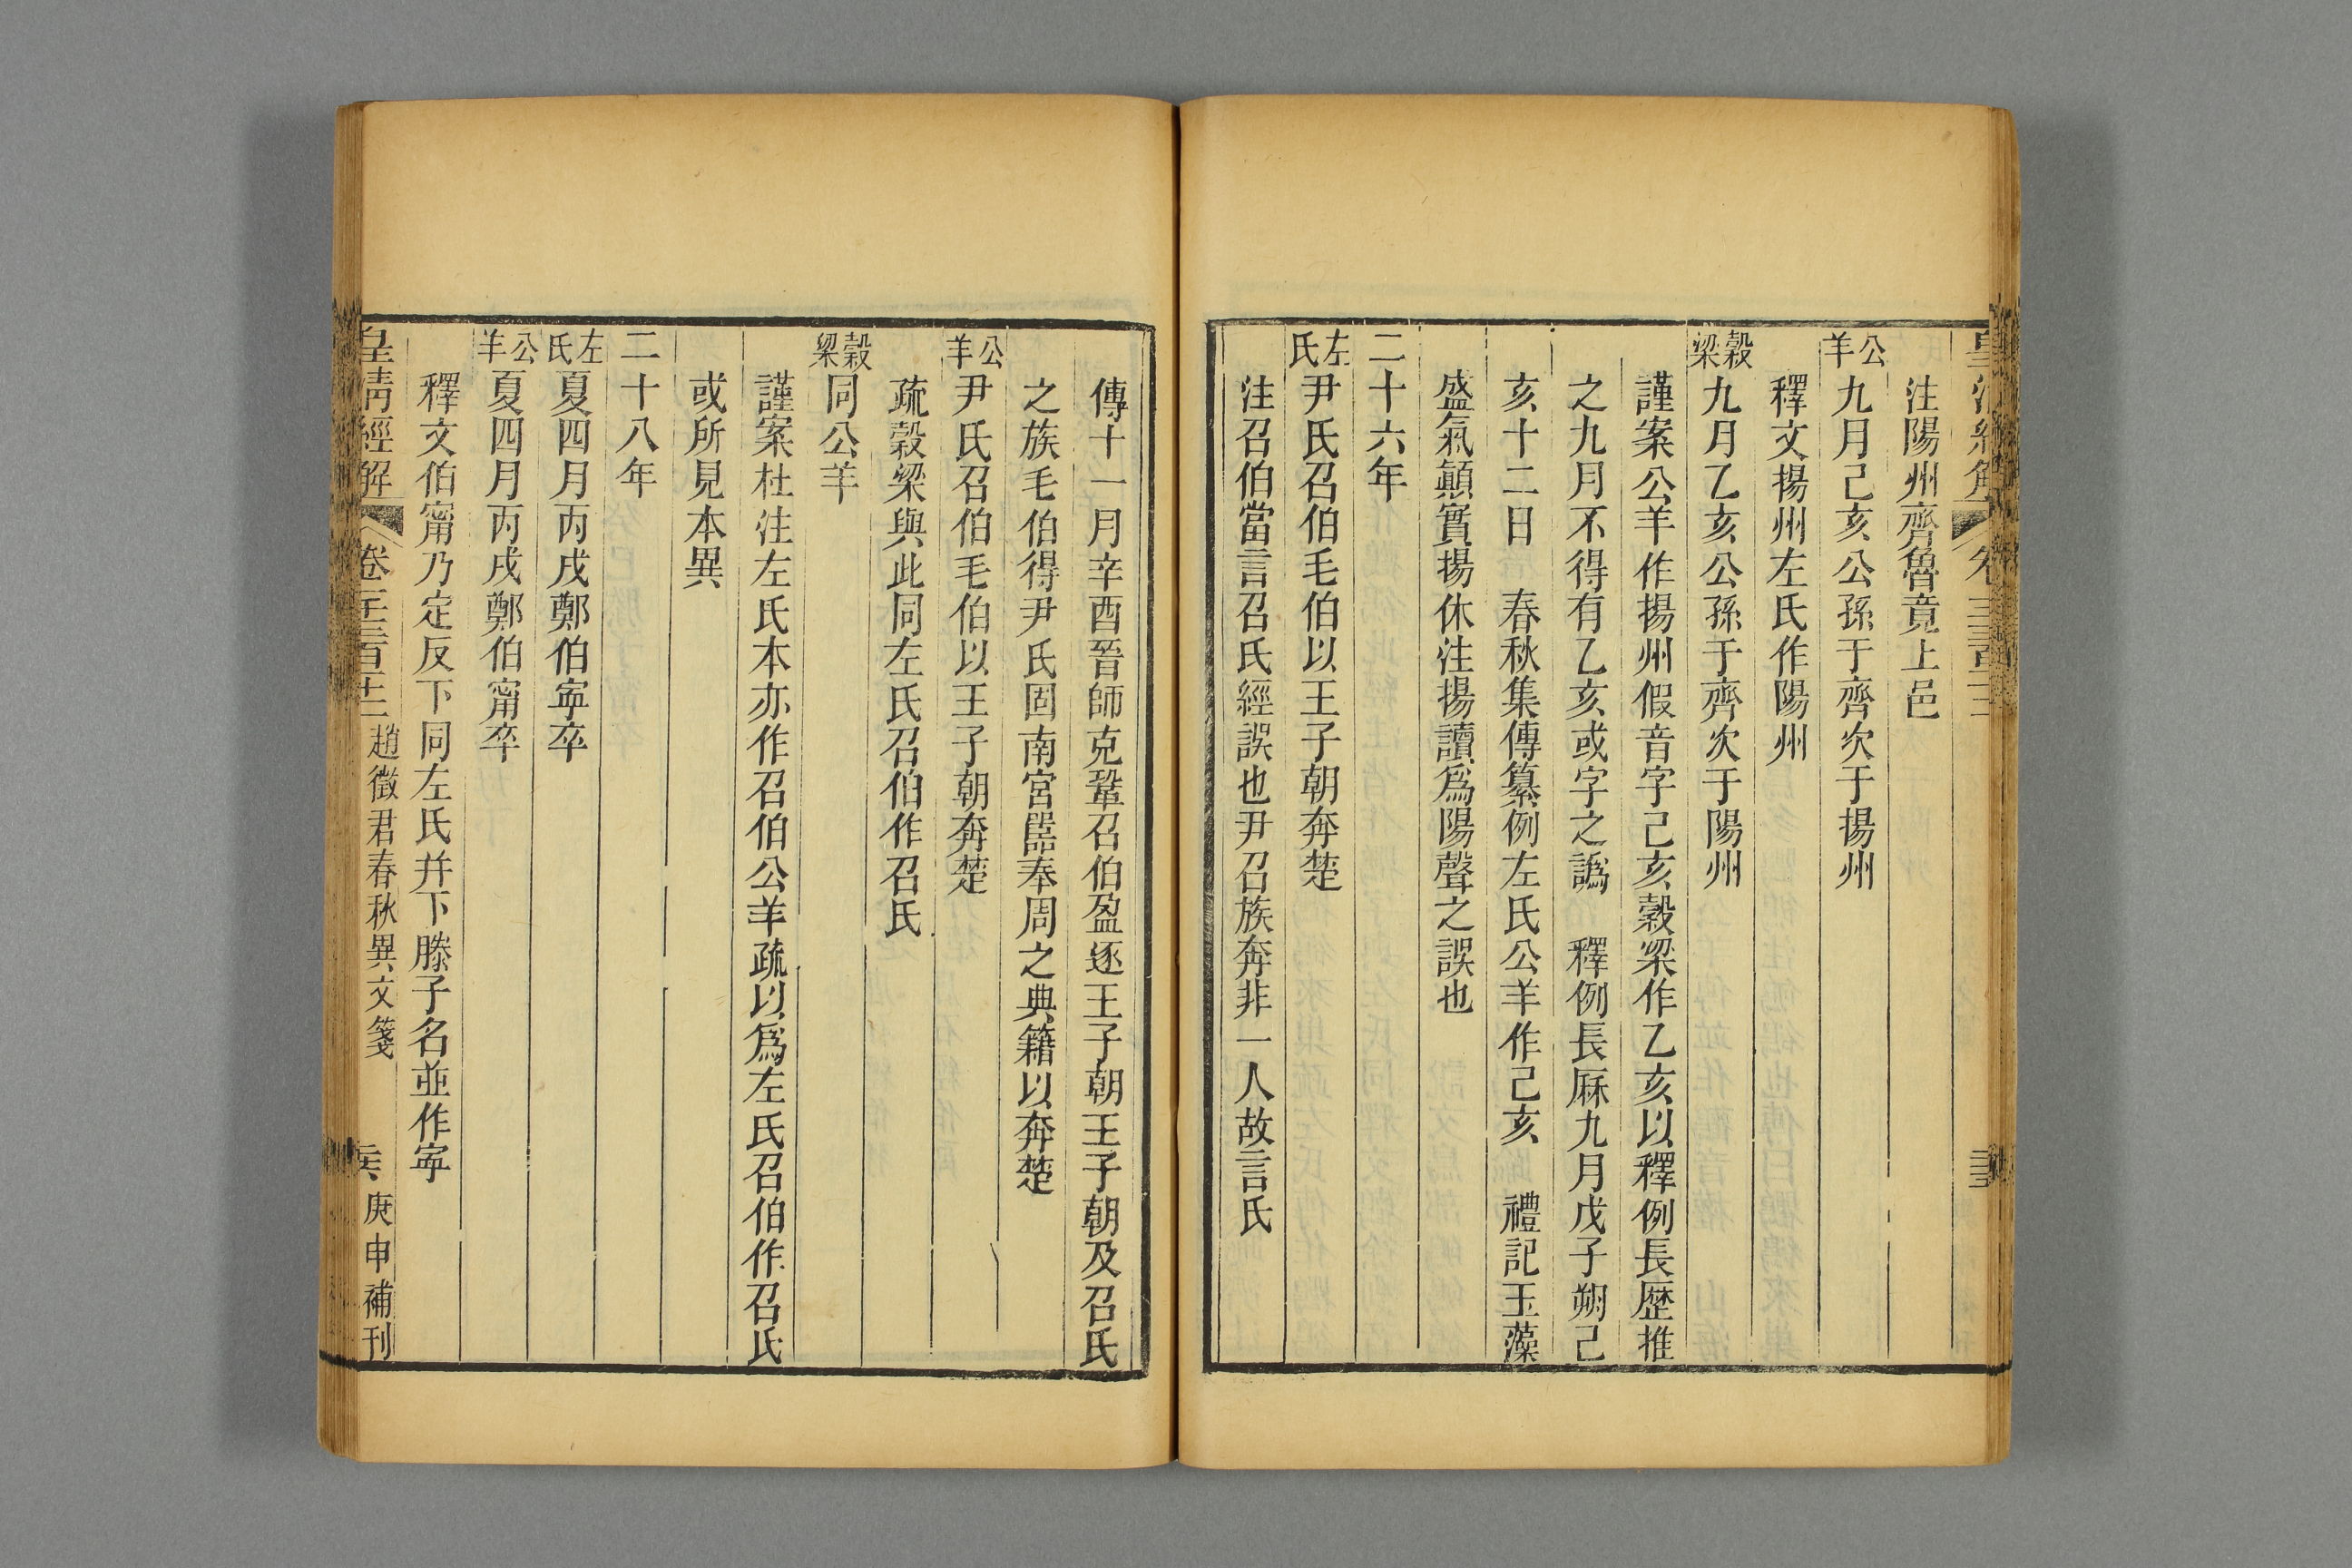 注陽州齊魯竟上邑
公羊九月己亥公孫于齊次于揚州
釋文揚州左氏作陽州
穀梁九月乙亥公孫于齊次于陽州
謹案公羊作揚州假音字己亥穀梁作乙亥以釋例長歷推
之九月不得有乙亥或字之譌　釋例長厤九月戊子朔己
亥十二日　春秋集傳纂例左氏公羊作己亥　禮記玉藻
盛氣顛實揚休注揚讀爲陽聲之誤也
二十六年
左氏尹氏召伯毛伯以王子朝奔楚
注召伯當言召氏經誤也尹召族奔非一人故言氏
傳十一月辛酉晉師克鞏召伯盈逐王子朝王子朝及召氏
之族毛伯得尹氏固南宮嚚奉周之典籍以奔楚
公羊尹氏召伯毛伯以王子朝奔楚
疏穀梁與此同左氏召伯作召氏
穀梁同公羊
謹案杜注左氏本亦作召伯公羊疏以爲左氏召伯作召氏
或所見本異
二十八年
左氏夏四月丙戌鄭伯寍卒
公羊夏四月丙戌鄭伯甯卒
釋文伯甯乃定反下同左氏并下滕子名並作寍
皇清經解　卷　趙徵君春秋異文箋　庚申補刊